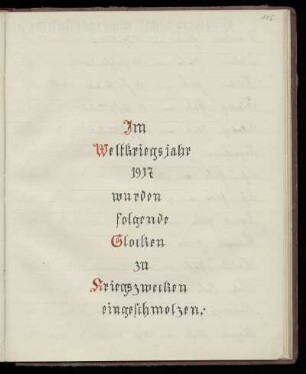 Im
Weltkriegsjahr
1917
wurden
folgende
Glocken
zu
Kriegszwecken
eingeschmolzen.